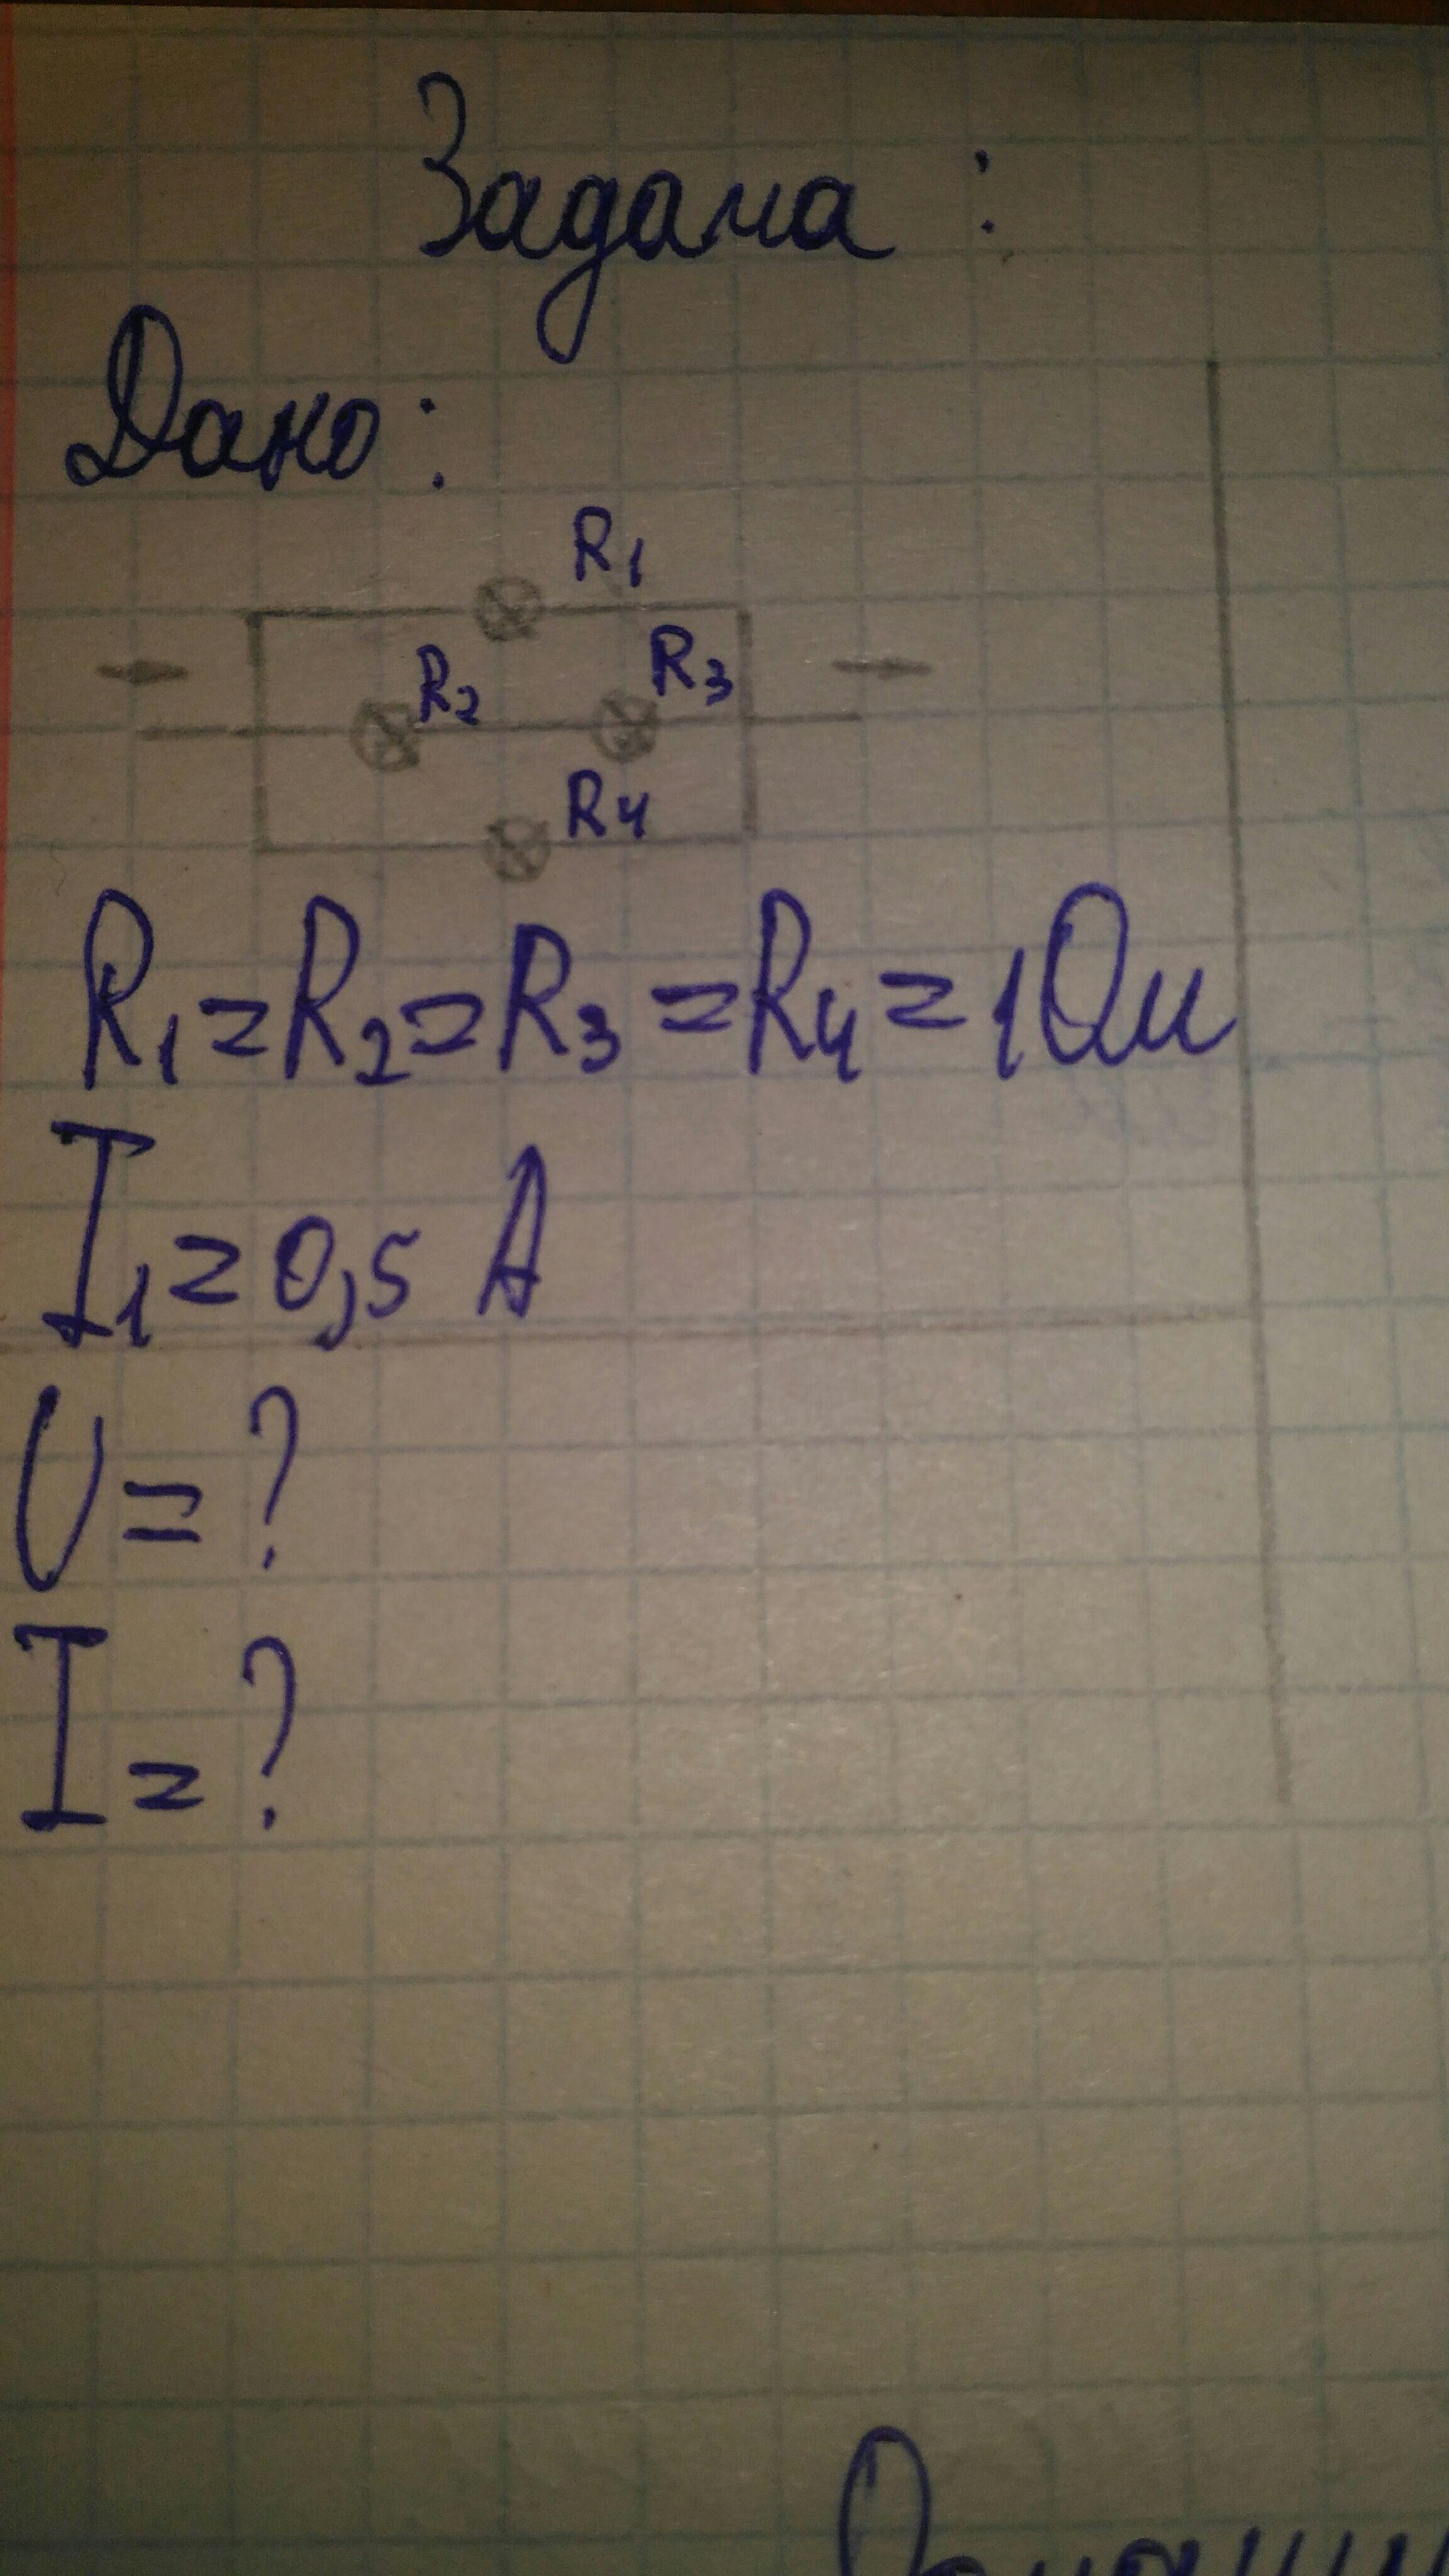 Задача :
Дано :
R1
R2 R3
R4
R1=R2=R3=R4=1Ом
I1=0,5 А
U=?
I=?